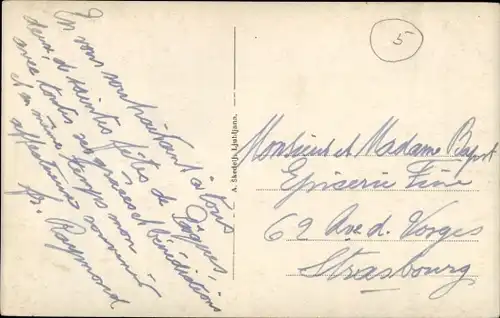 En vous souhaitant à tous
deux, de saintes fêtes de Pâques,
avec toutes ses grâces et bénédictions
et en même temps mon
affectueux souvenir
fr. Raymond
A. Skedelj, Ljubljana.
5
Monsieur et Madame
Epicerie Fine
62 Av. d. Vosges
Strasbourg